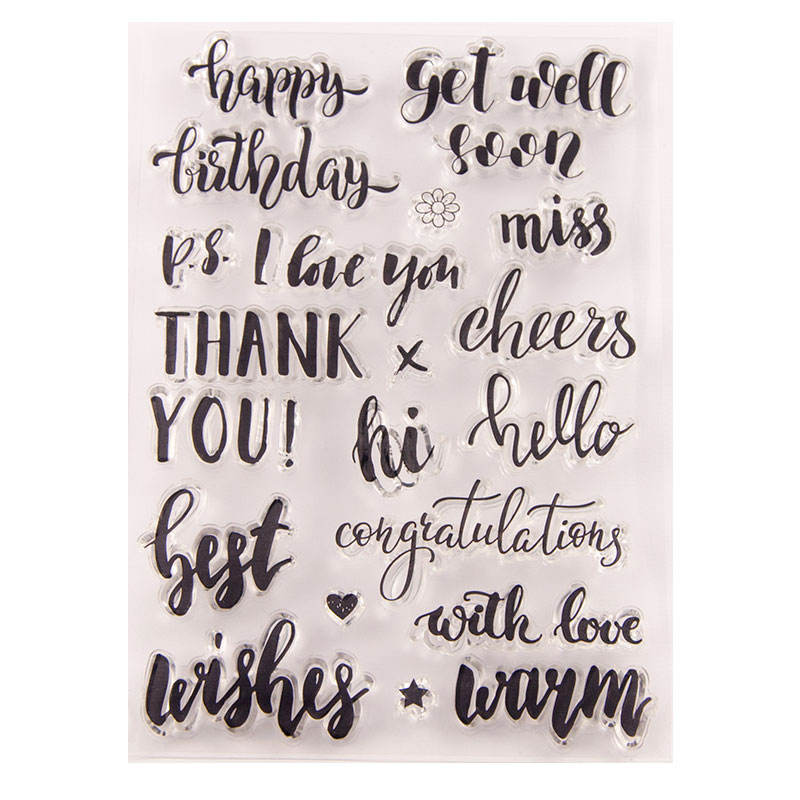 happy
birthday
get well
soon
miss
p.s. I love you
THANK
YOU!
x
cheers
hi
hello
best
wishes
congratulations
with love
warm